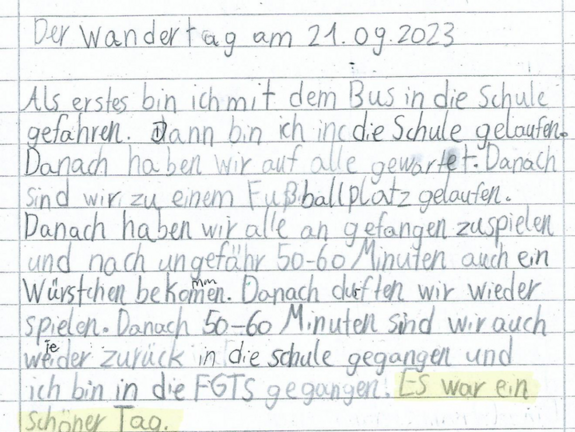 Der Wandertag am 21.09.2023
Als erstes bin ich mit dem Bus in die Schule
gefahren. Dann bin ich in die Schule gelaufen.
Danach haben wir auf alle gewartet. Danach
sind wir zu einem Fußballplatz gelaufen.
Danach haben wir alle an gefangen zuspielen
und nach ungefähr 50-60 Minuten auch ein
Würstchen bekommen. Danach durften wir wieder
spielen. Danach 50-60 Minuten sind wir auch
wieder zurück in die schule gegangen und
ich bin in die FGTS gegangen. Es war ein
schöner Tag.